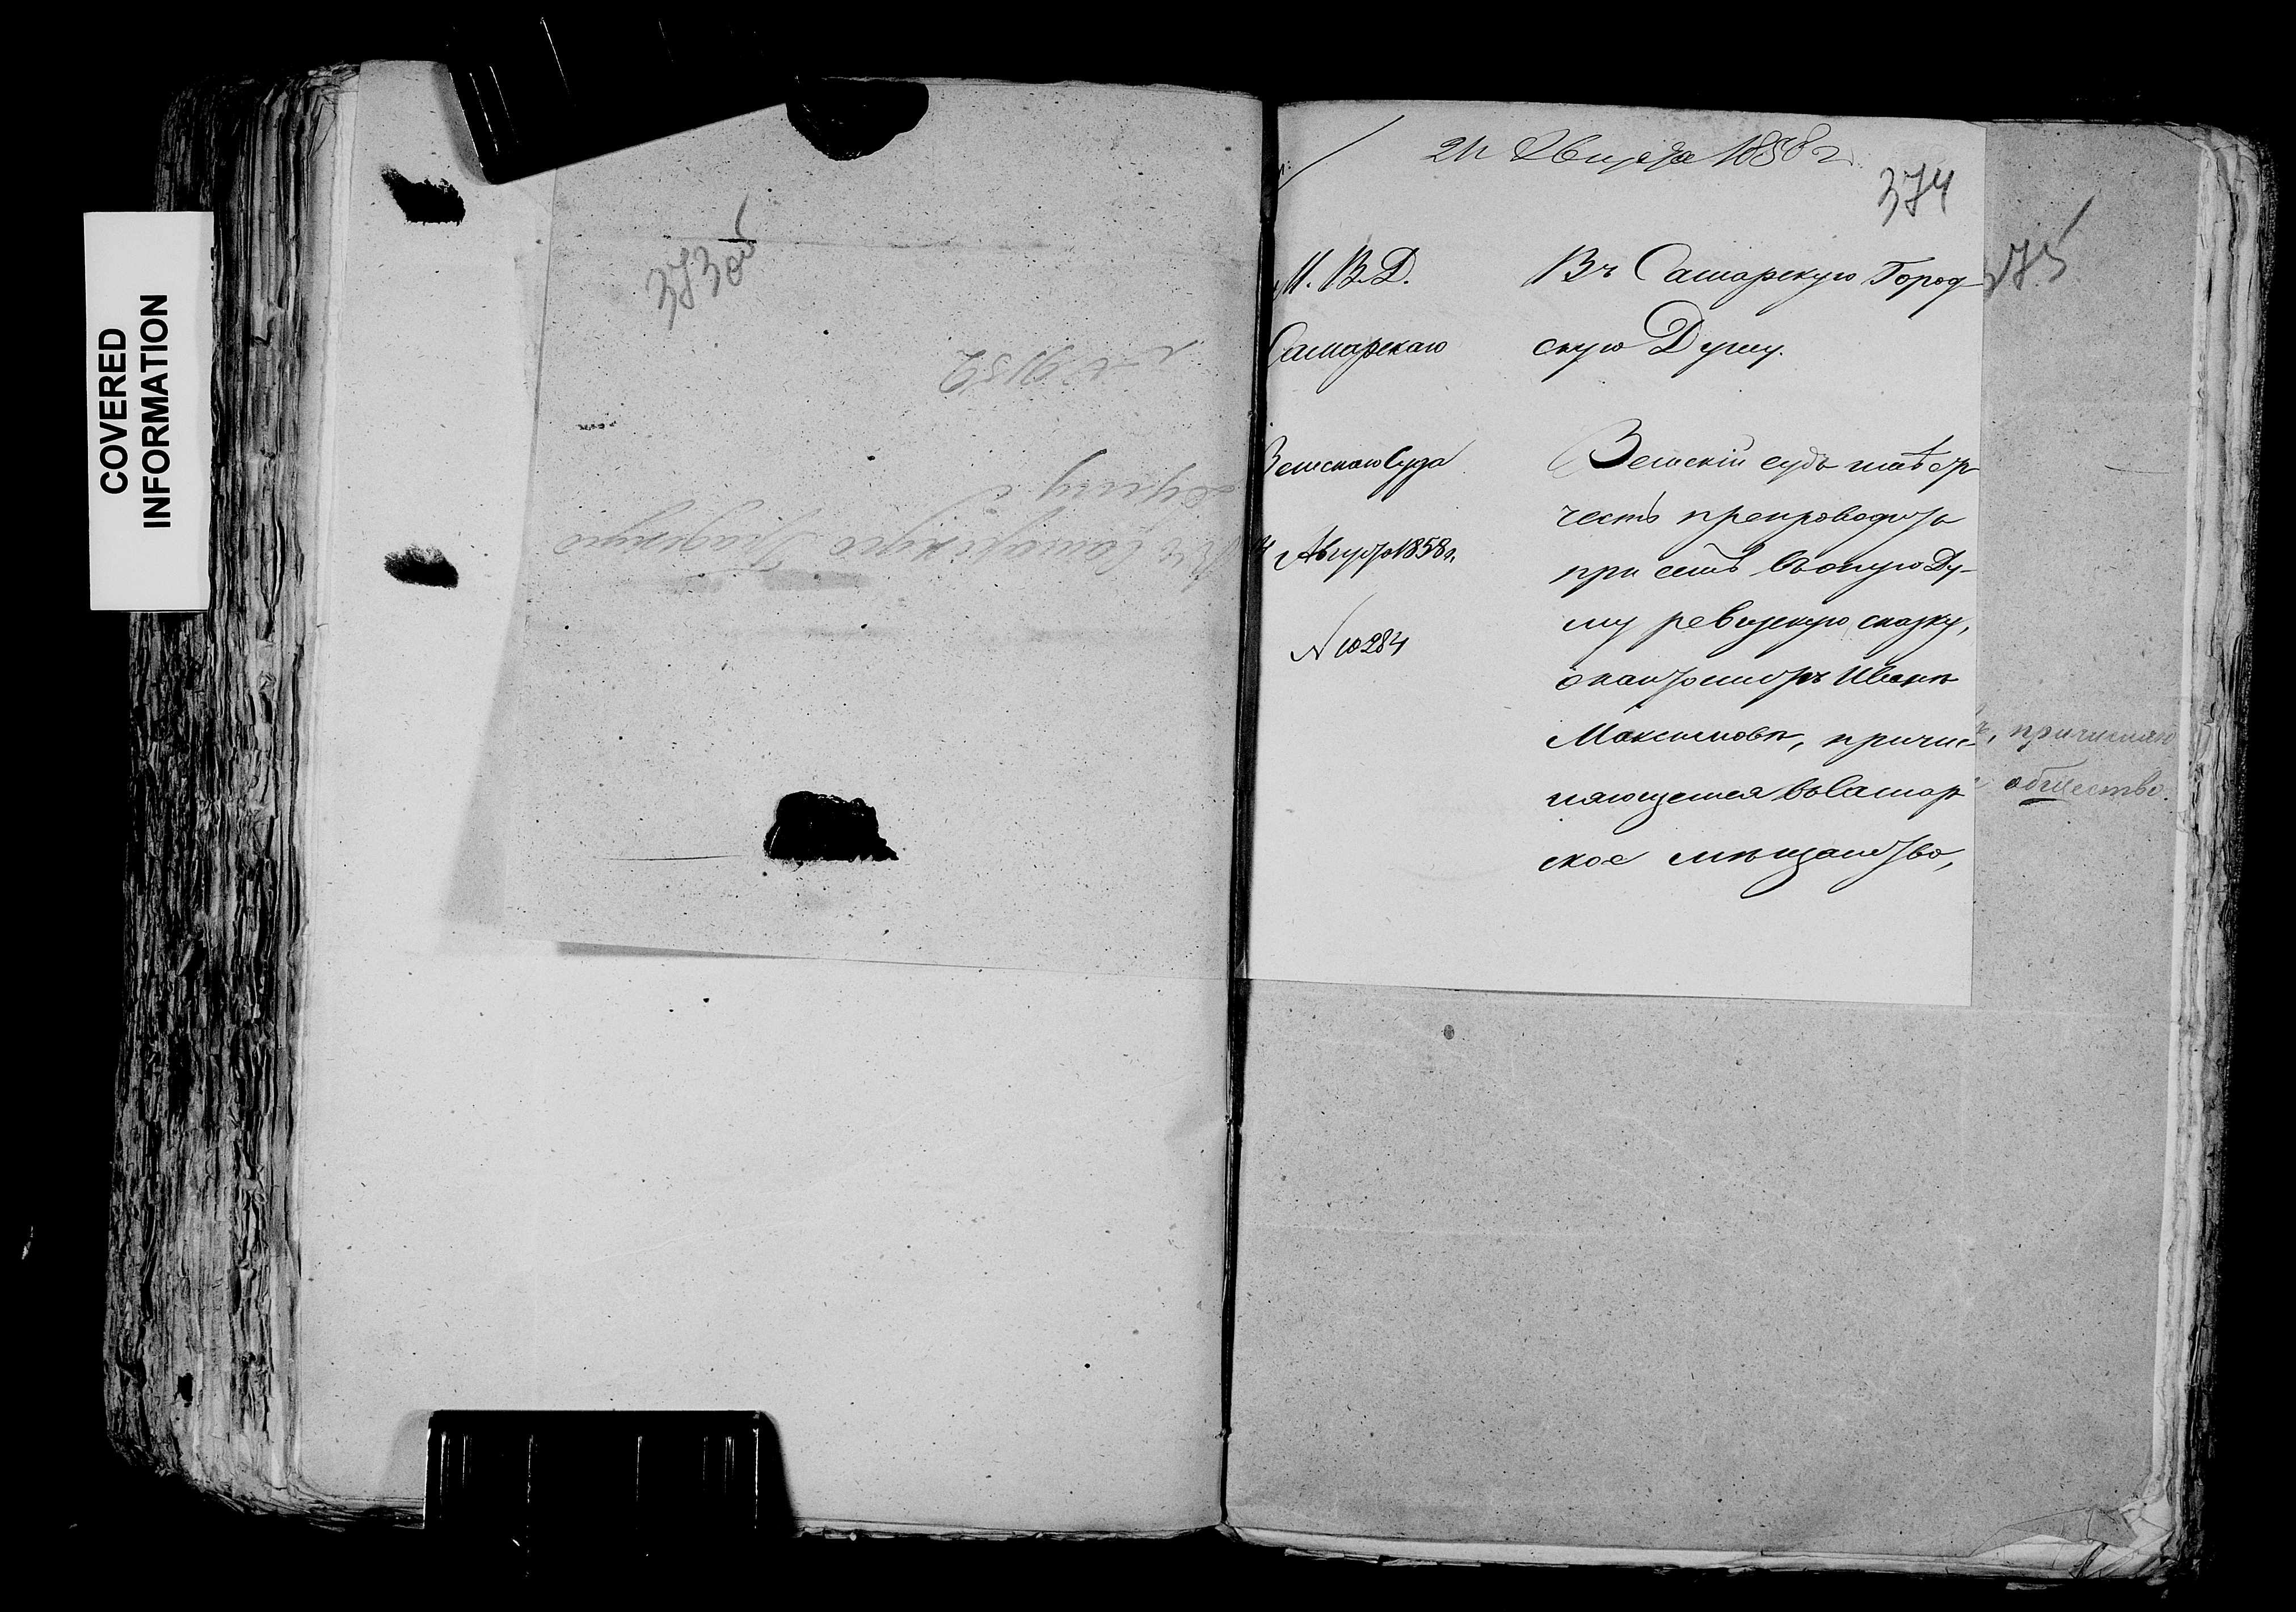 COVERED
INFORMATION
373 об
№ 9132
Въ Самарскую Градскую
Думу
21 Августа 1858 г.
374
М. В. Д.
Самарскаго
Земскаго Суда
Августа 1858 г.
№ 10284
Въ Самарскую Город-
скую Думу.
Земскій судъ имѣетъ
честь препроводить
при семъ въ оную Ду-
му ревизскую сказку,
о кантонистѣ Иванѣ
Максимовѣ, причис-
ляющемся въ Самар
ское мѣщанство,
375
причислен
общество.